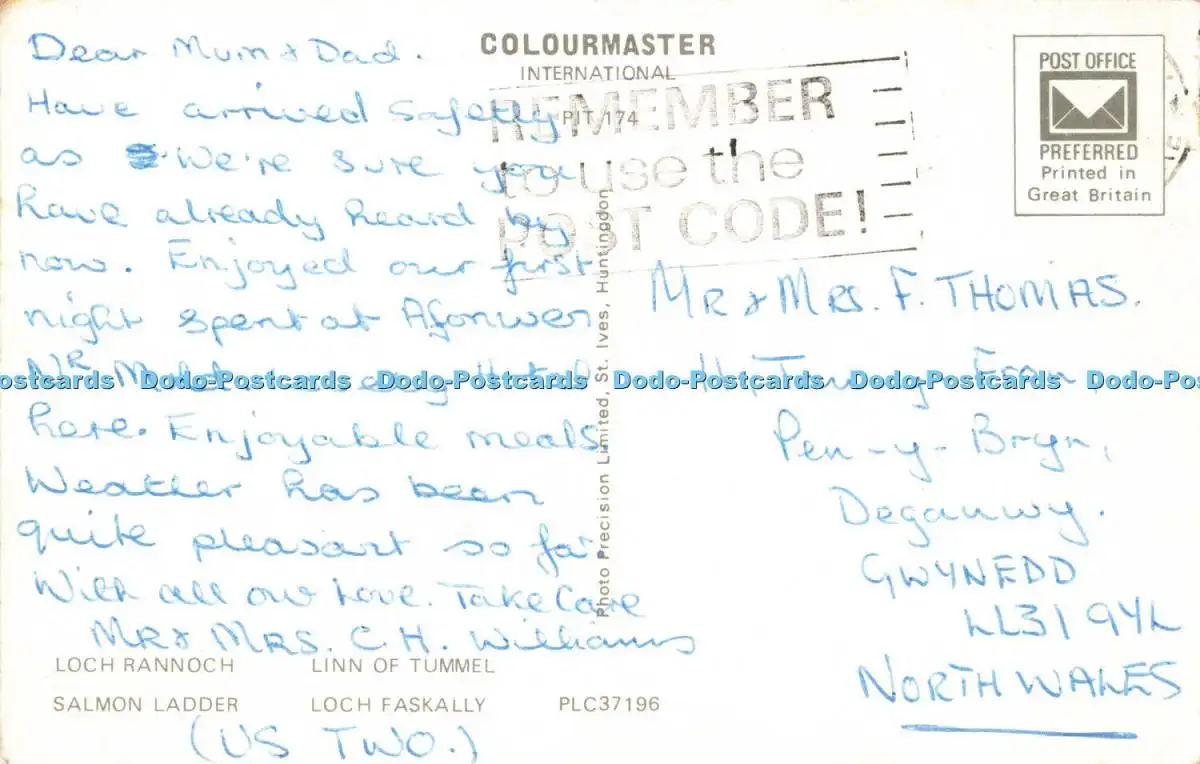 Dear Mum & Dad.
Have arrived Safetly
as We're sure you
have already heard by
now. Enjoyed our first
night spent at Afonwen
NR Mold
here. Enjoyable meals.
Weather has been
quite pleasant so far
With all our Love. Take Care
MR & MRS. C. H. Williams
(US TWO.)
COLOURMASTER
INTERNATIONAL
PIT 174
REMEMBER
to use the
POST CODE!
POST OFFICE
PREFERRED
Printed in
Great Britain
Photo Precision Limited, St. Ives, Huntingdon
MR & MRS. F. THOMAS.
Pen-y-Bryn,
Deganwy.
GWYNEDD
LL31 9YL
NORTH WALES
Dodo-Postcards Dodo-Postcards Dodo-Postcards Dodo-Postcards Dodo-Postcards
LOCH RANNOCH LINN OF TUMMEL
SALMON LADDER LOCH FASKALLY PLC37196